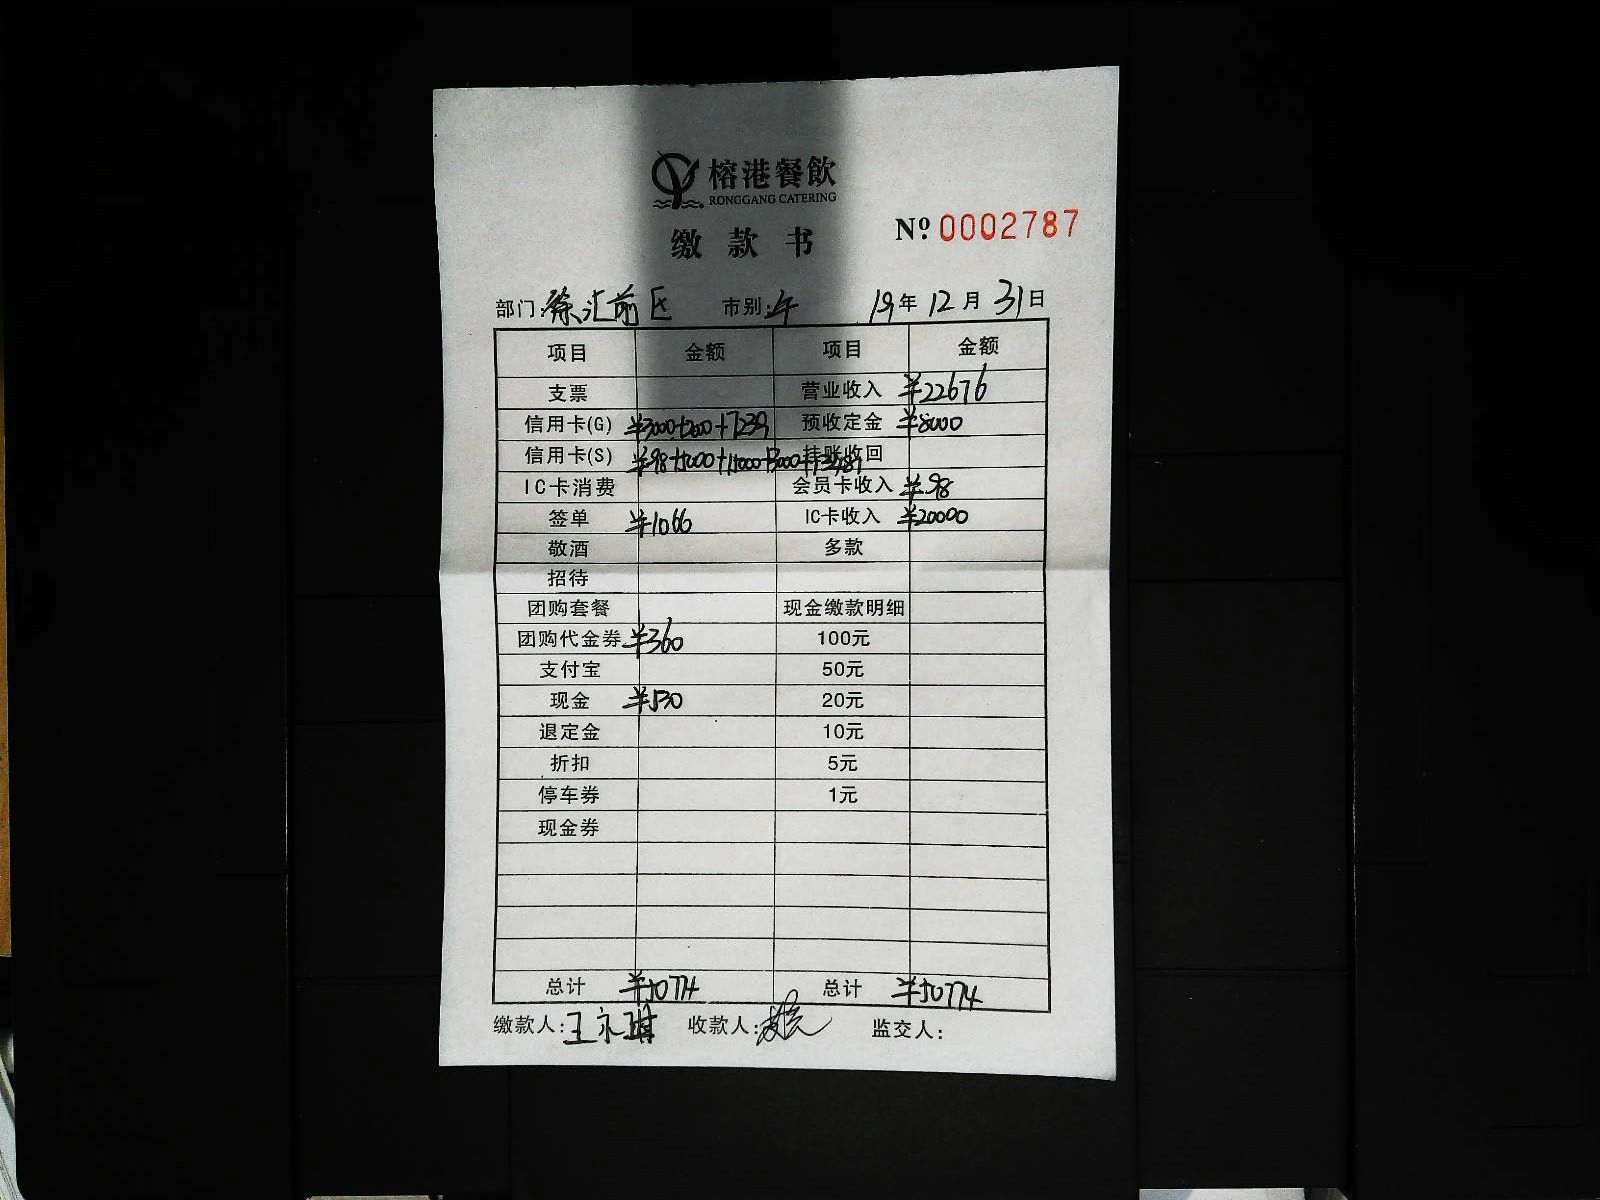 榕港餐飲
RONGGANG CATERING
缴款书
Nº 0002787
部门:徐汇前区 市别:午 19年12月31日
项目 金额 项目 金额
支票 营业收入 ¥22676
信用卡(G) ¥3000+ +7239 预收定金 ¥8000
信用卡(S) ¥98+ 挂账收回
IC卡消费 会员卡收入 ¥98
签单 ¥1066 IC卡收入 ¥20000
敬酒 多款
招待
团购套餐 现金缴款明细
团购代金券 ¥360 100元
支付宝 50元
现金 ¥530 20元
退定金 10元
折扣 5元
停车券 1元
现金券
总计 ¥50774 总计 ¥50774
缴款人:王永琪 收款人: 监交人: